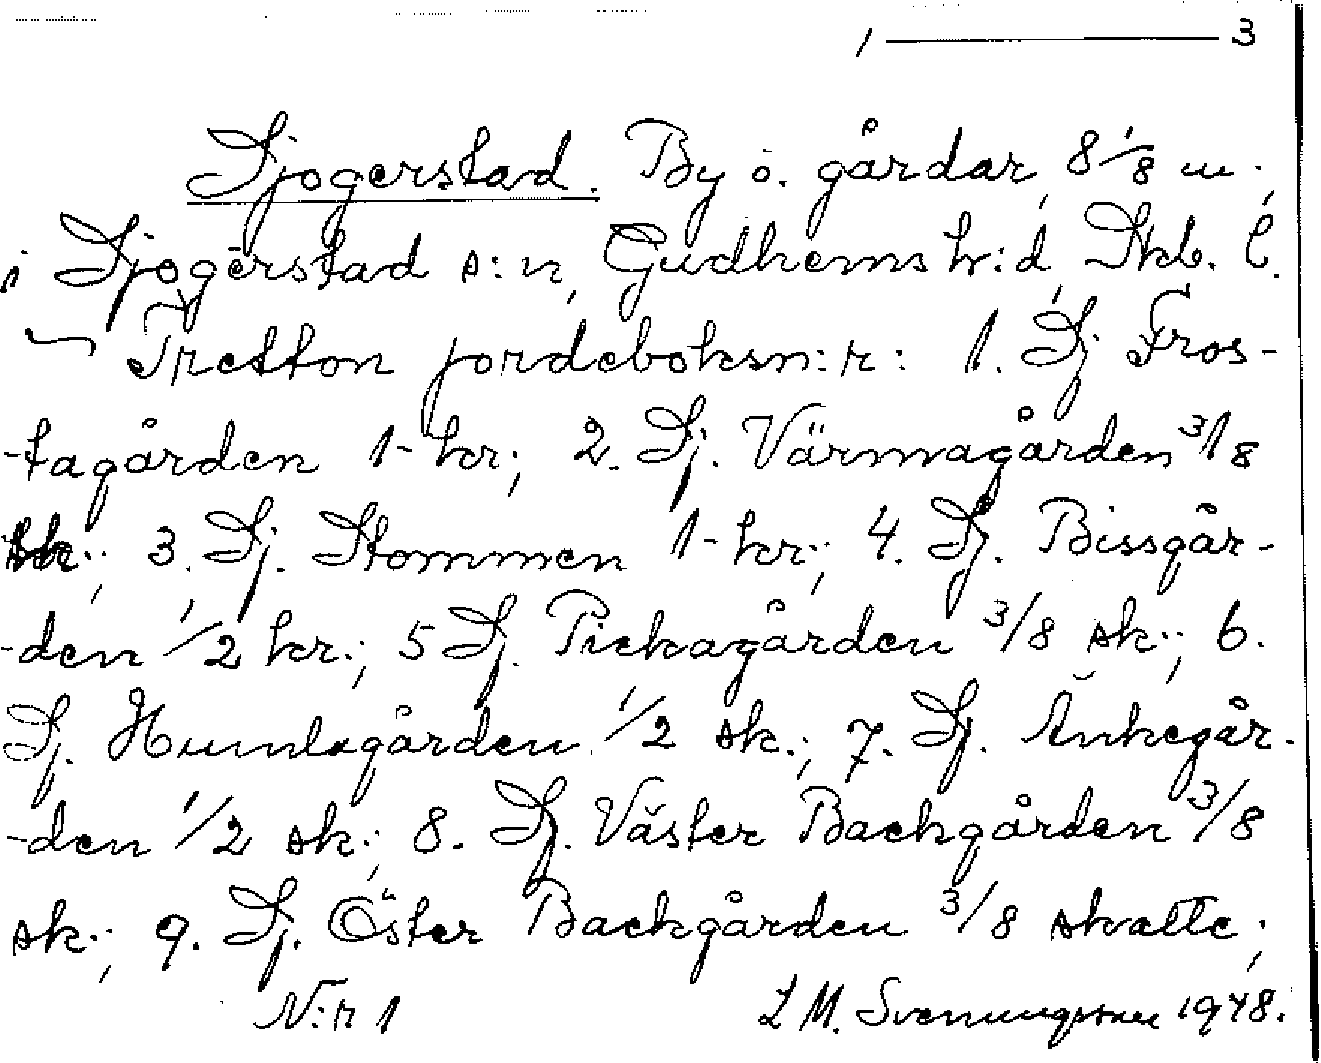 1 — 3
Sjogerstad. By o. gårdar, 8 1/8 m.,
i Sjogerstad s:n, Gudhems h:d, Skb. l.
Tretton jordeboksn:r: 1. Sj Fros-
-tagården 1- kr; 2. Sj. Värmagården 3/8
sk.; 3. Sj. Stommen 1- kr.; 4. Sj. Bissgår-
-den 1/2 kr.; 5 Sj. Pickagården 3/8 sk.; 6.
Sj. Humlagården 1/2 sk.; 7. Sj. Änkegår-
-den 1/2 sk.; 8. Sj. Väster Backgården 3/8
sk.; 9. Sj. Öster Backgården 3/8 skatte;
N:r 1 L M. Svenungsson 1948.